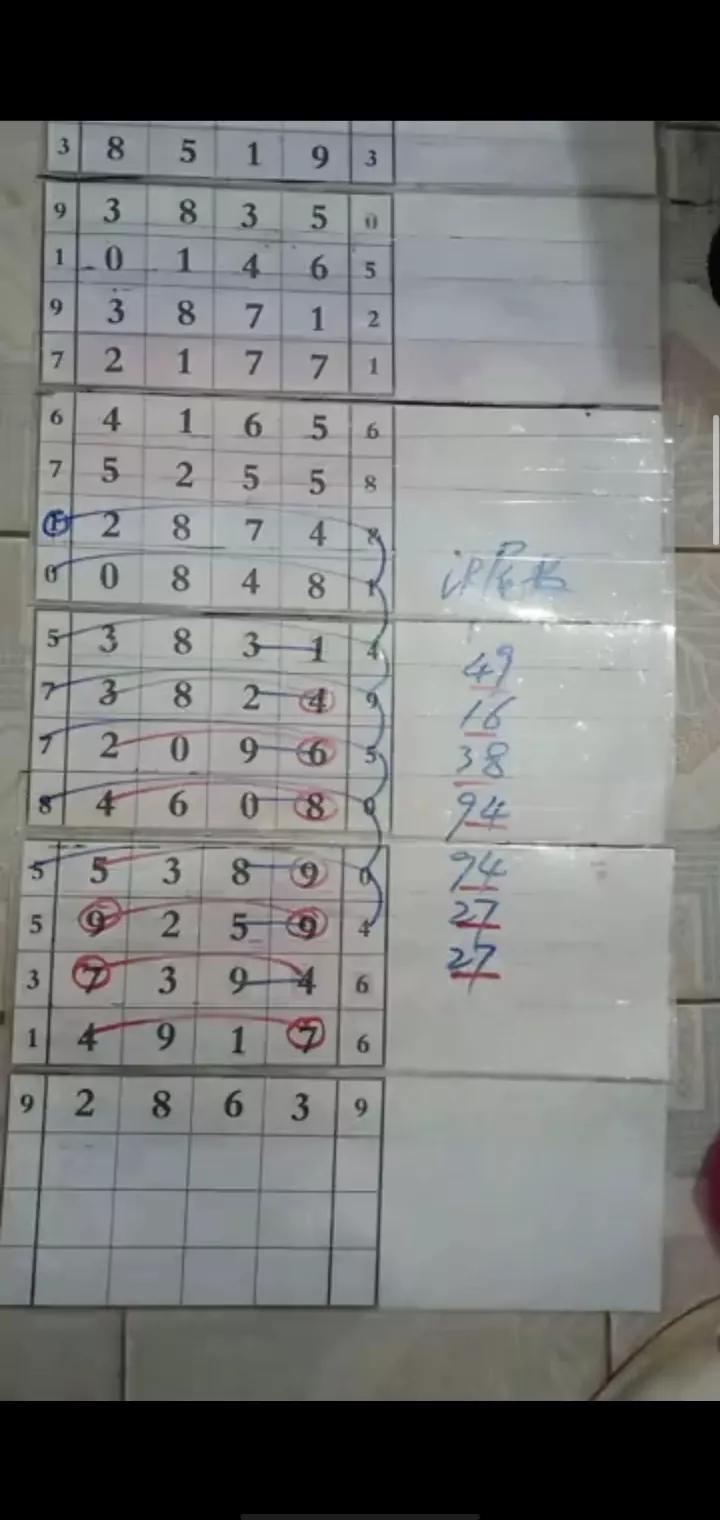 3 8 5 1 9 3
9 3 8 3 5 0
1 0 1 4 6 5
9 3 8 7 1 2
7 2 1 7 7 1
6 4 1 6 5 6
7 5 2 5 5 8
2 8 7 4 8
0 0 8 4 8 1
5 3 8 3 1 4
49
7 3 8 2 4 9
16
7 2 0 9 6 5
38
8 4 6 0 8 0
94
5 5 3 8 9 0
94
5 9 2 5 9 4
27
3 7 3 9 4 6
27
1 4 9 1 7 6
9 2 8 6 3 9